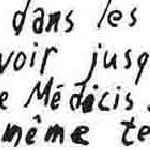 dans les
voir jusq
e Médicis
même te